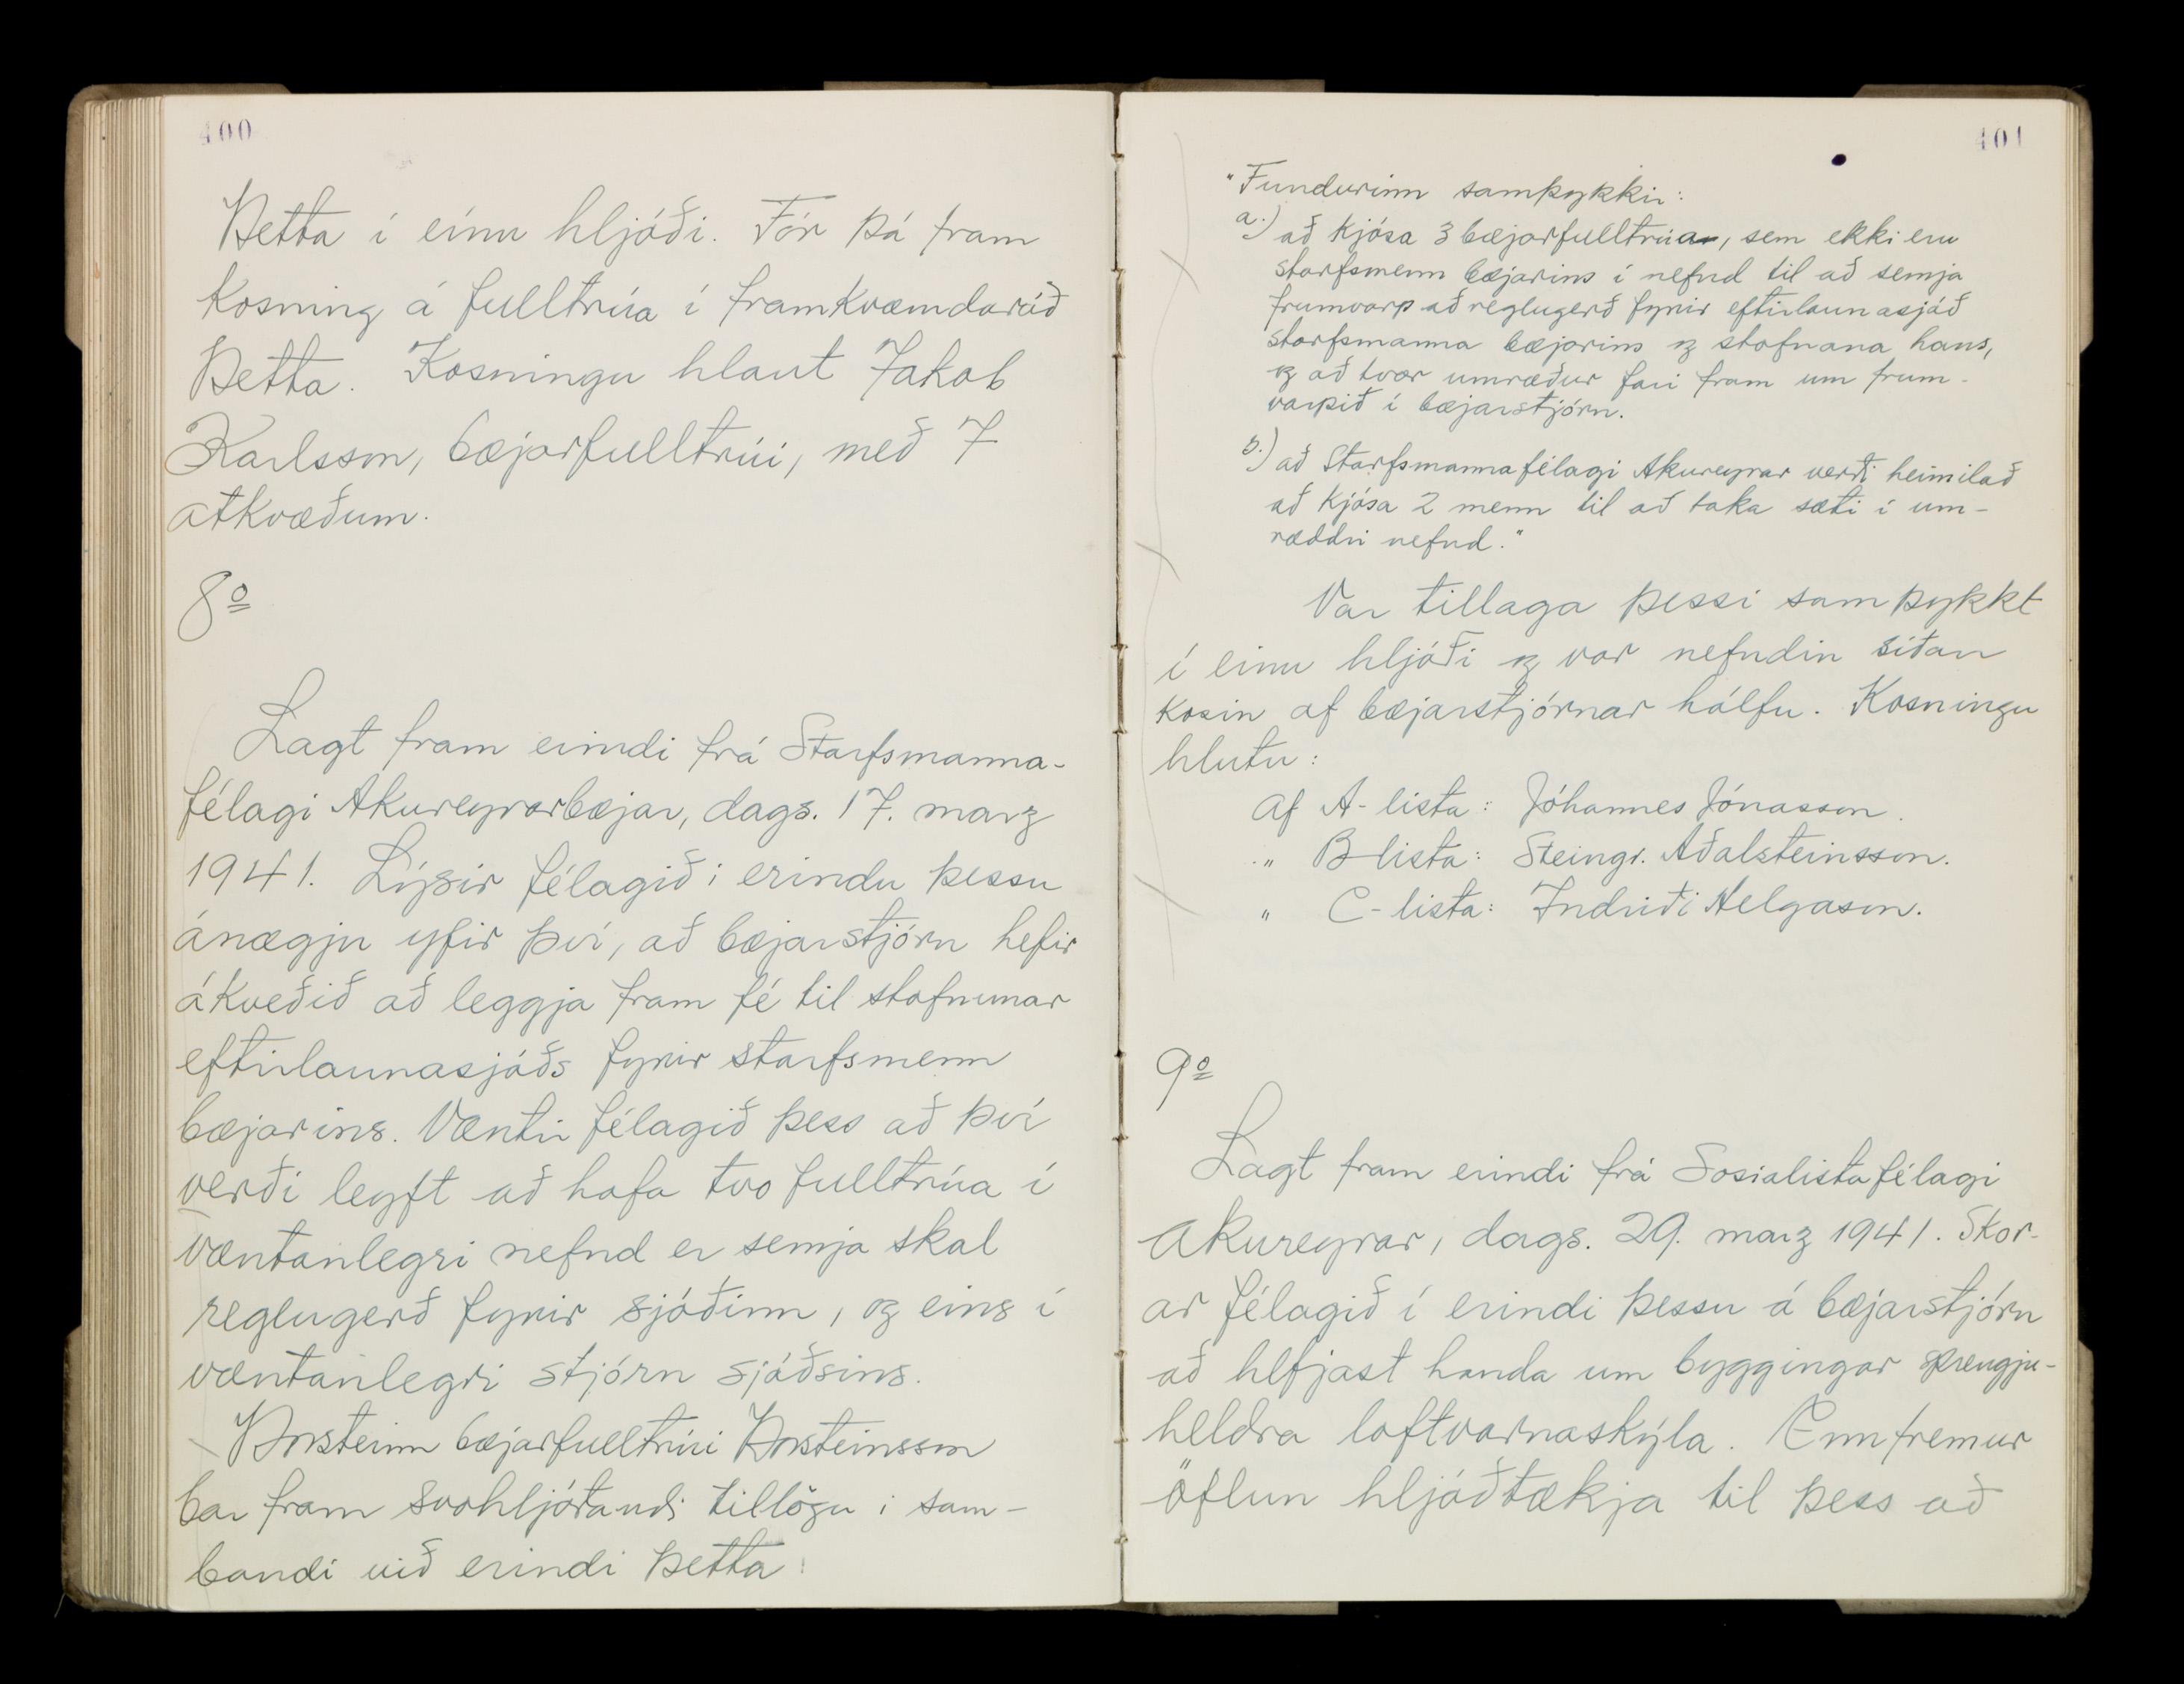 400
Þetta í einu hljóði. Fór þá fram
kosning á fulltrúa í framkvæmdaráð
Þetta. Kosningu hlaut Jakob
Karlsson, bæjarfulltrúi, með 7
atkvæðum.
8º
Lagt fram erindi frá Starfsmanna-
félagi Akureyrarbæjar, dags. 17. marz
1941. Lýsir félagið í erindu þessu
ánægju yfir því, að bæjarstjórn hefir
ákveðið að leggja fram fé til stofnunar
eftirlaunasjóðs fyrir starfsmenn
bæjarins. Væntir félagið þess að því
verði leyft að hafa tvo fulltrúa í
væntanlegri nefnd er semja skal
reglugerð fyrir sjóðinn, og eins í
væntanlegri stjórn sjóðsins.
Þorsteinn bæjarfulltrúi Þorsteinsson
bar fram svohljóðandi tillögu í sam-
bandi við erindi þetta:
401
"Fundurinn samþykkir:
a.) að kjósa 3 bæjarfulltrúa, sem ekki eru
starfsmenn bæjarins í nefnd til að semja
frumvarp að reglugerð fyrir eftirlaunasjóð
starfsmanna bæjarins og stofnana hans,
og að tvær umræður fari fram um frum-
varpið í bæjarstjórn.
b.) að Starfsmannafélagi Akureyrar verði heimilað
að kjósa 2 menn til að taka sæti í um-
ræddri nefnd."
Var tillaga þessi samþykkt
í einu hljóði og var nefndin síðan
kosin af bæjarstjórnar hálfu. Kosningu
hlutu:
Af A-lista: Jóhannes Jónasson.
" B-lista: Steingr. Aðalsteinsson.
" C-lista: Indriði Helgason.
9º
Lagt fram erindi frá Sosialistafélagi
Akureyrar, dags. 29. marz 1941. Skor-
ar félagið í erindi þessu á bæjarstjórn
að hefjast handa um byggingar sprengju-
heldra loftvarnaskýla. Ennfremur
öflun hljóðtækja til þess að